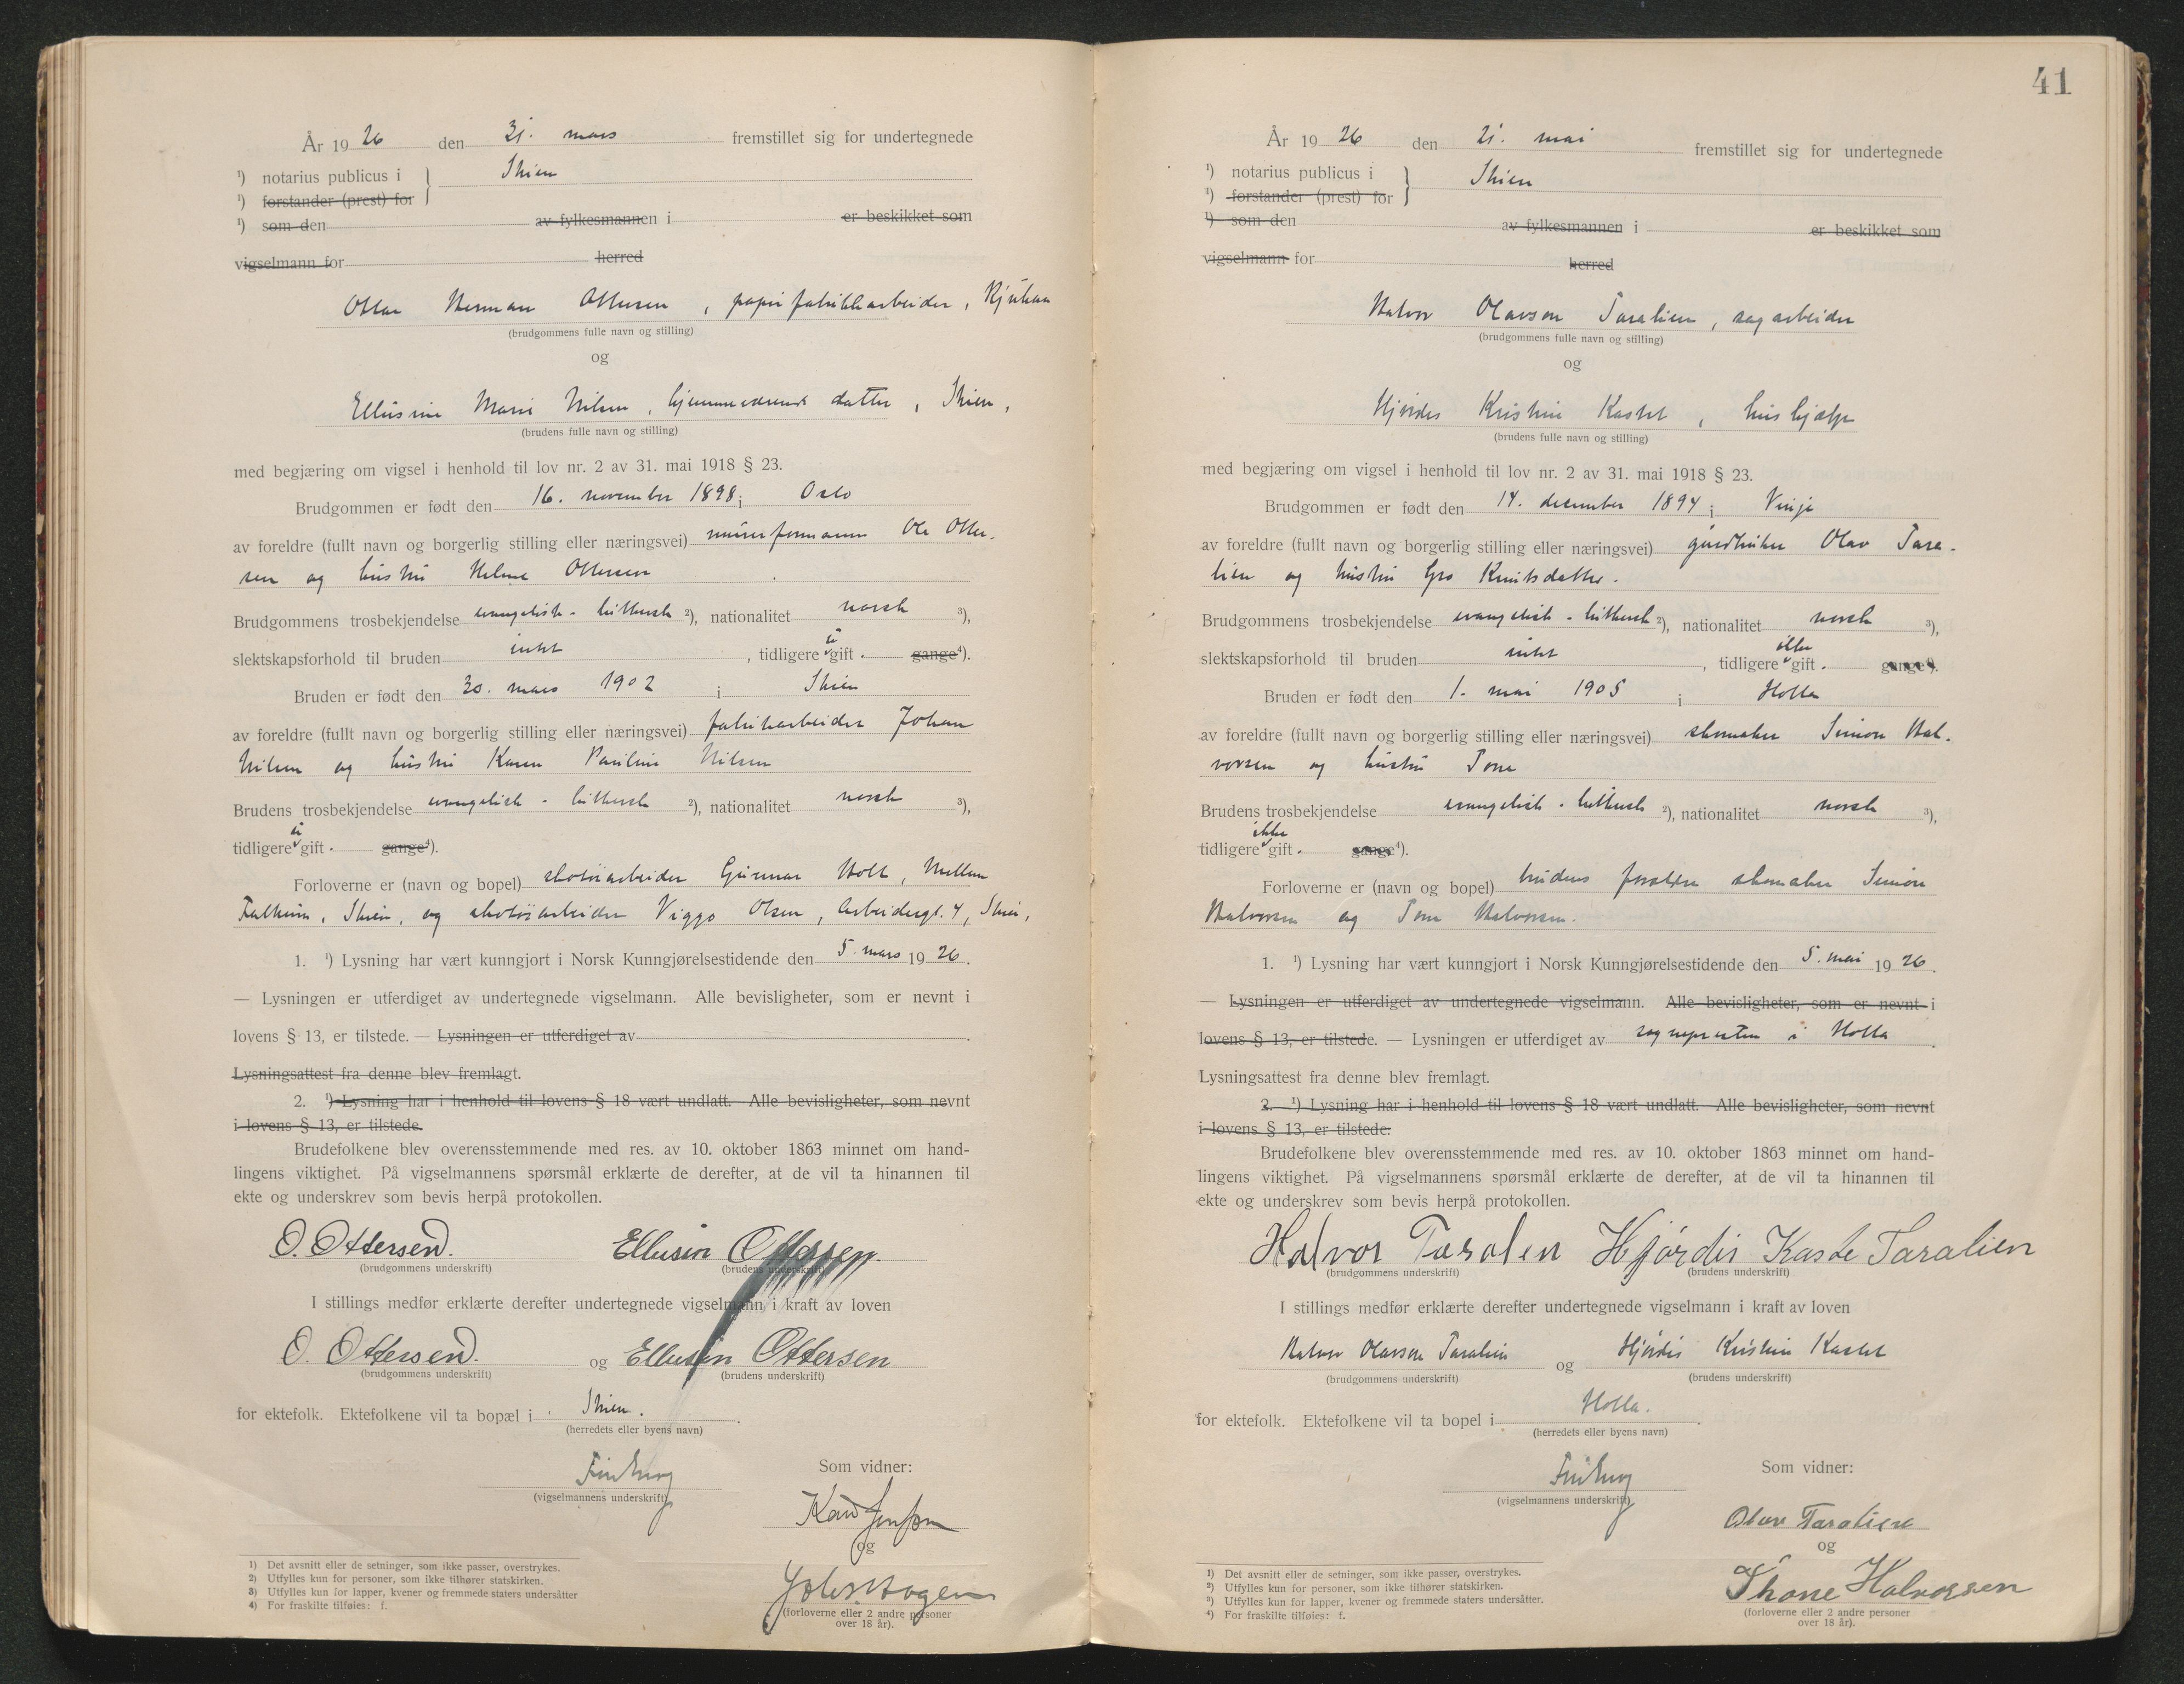 År 1926 den 31. mars fremstillet sig for undertegnede
¹) notarius publicus i Skien
¹) forstander (prest) for
¹) som den av fylkesmannen i er beskikket som
vigselmann for herred
Herman Ottersen, papirfabrikkarbeider, Rjukan
(brudgommens fulle navn og stilling)
og
Ellusine Marie Nilsen, hjemmeværende datter, Skien,
(brudens fulle navn og stilling)
med begjæring om vigsel i henhold til lov nr. 2 av 31. mai 1918 § 23.
Brudgommen er født den 16. november 1898 i Oslo
av foreldre (fullt navn og borgerlig stilling eller næringsvei) murerformann Ole Otter-
sen og hustru Helene Ottersen
Brudgommens trosbekjendelse evangelisk-luthersk ²), nationalitet norsk ³),
slektskapsforhold til bruden intet, tidligere ei gift. gange⁴).
Bruden er født den 30. mars 1902 i Skien
av foreldre (fullt navn og borgerlig stilling eller næringsvei) fabrikarbeider Johan
Nilsen og hustru Karen Pauline Nilsen
Brudens trosbekjendelse evangelisk-luthersk ²), nationalitet norsk ³),
tidligere ei gift. gange⁴).
Forloverne er (navn og bopel) skotøiarbeider Gunnar Holt, Mellem
Falkum, Skien, og skotøiarbeider Viggo Olsen, Arbeidergt. 4, Skien,
1. ¹) Lysning har vært kunngjort i Norsk Kunngjørelsestidende den 5. mars 1926.
— Lysningen er utferdiget av undertegnede vigselmann. Alle bevisligheter, som er nevnt i
lovens § 13, er tilstede. — Lysningen er utferdiget av
Lysningsattest fra denne blev fremlagt.
2. ¹) Lysning har i henhold til lovens § 18 vært undlatt. Alle bevisligheter, som nevnt
i lovens § 13, er tilstede.
Brudefolkene blev overensstemmende med res. av 10. oktober 1863 minnet om hand-
lingens viktighet. På vigselmannens spørsmål erklærte de derefter, at de vil ta hinannen til
ekte og underskrev som bevis herpå protokollen.
O. Ottersen. Ellusin Ottersen.
(brudgommens underskrift) (brudens underskrift)
I stillings medfør erklærte derefter undertegnede vigselmann i kraft av loven
O. Ottersen. og Ellusin Ottersen
(brudgommens underskrift) (brudens underskrift)
for ektefolk. Ektefolkene vil ta bopæl i Skien.
(herredets eller byens navn)
Som vidner:
(vigselmannens underskrift)
og
(forloverne eller 2 andre personer
over 18 år).
1) Det avsnitt eller de setninger, som ikke passer, overstrykes.
2) Utfylles kun for personer, som ikke tilhører statskirken.
3) Utfylles kun for lapper, kvener og fremmede staters undersåtter
4) For fraskilte tilføies: f.
41
År 1926 den 21. mai fremstillet sig for undertegnede
¹) notarius publicus i Skien
¹) forstander (prest) for
¹) som den av fylkesmannen i er beskikket som
vigselmann for herred
Halvor Olavson Taralien, sagarbeider
(brudgommens fulle navn og stilling)
og
Hjørdis Kristine Kastet, hushjælp
(brudens fulle navn og stilling)
med begjæring om vigsel i henhold til lov nr. 2 av 31. mai 1918 § 23.
Brudgommen er født den 14. december 1894 i Vinje
av foreldre (fullt navn og borgerlig stilling eller næringsvei) gårdbruker Olav Tara-
lien og hustru Gro Knutsdatter.
Brudgommens trosbekjendelse evangelisk-luthersk ²), nationalitet norsk ³),
slektskapsforhold til bruden intet, tidligere ikke gift. gange⁴).
Bruden er født den 1. mai 1905 i Holla
av foreldre (fullt navn og borgerlig stilling eller næringsvei) skomaker Simon Hal-
vorsen og hustru Tone
Brudens trosbekjendelse evangelisk-luthersk ²), nationalitet norsk ³),
tidligere ikke gift. gange⁴).
Forloverne er (navn og bopel) brudens forældre skomaker Simon
Halvorsen og Tone Halvorsen.
1. ¹) Lysning har vært kunngjort i Norsk Kunngjørelsestidende den 5. mai 1926.
— Lysningen er utferdiget av undertegnede vigselmann. Alle bevisligheter, som er nevnt i
lovens § 13, er tilstede. — Lysningen er utferdiget av sognepresten i Holla.
Lysningsattest fra denne blev fremlagt.
2. ¹) Lysning har i henhold til lovens § 18 vært undlatt. Alle bevisligheter, som nevnt
i lovens § 13, er tilstede.
Brudefolkene blev overensstemmende med res. av 10. oktober 1863 minnet om hand-
lingens viktighet. På vigselmannens spørsmål erklærte de derefter, at de vil ta hinannen til
ekte og underskrev som bevis herpå protokollen.
Halvor Taralen Hjørdis Kaste Taralien
(brudgommens underskrift) (brudens underskrift)
I stillings medfør erklærte derefter undertegnede vigselmann i kraft av loven
Halvor Olavson Taralien og Hjørdis Kristine Kastet
(brudgommens underskrift) (brudens underskrift)
for ektefolk. Ektefolkene vil ta bopel i Holla.
(herredets eller byens navn)
Som vidner:
(vigselmannens underskrift)
Olav Taralien
og
Thone Halvorsen
(forloverne eller 2 andre personer
over 18 år).
1) Det avsnitt eller de setninger, som ikke passer, overstrykes.
2) Utfylles kun for personer, som ikke tilhører statskirken.
3) Utfylles kun for lapper, kvener og fremmede staters undersåtter.
4) For fraskilte tilføies: f.